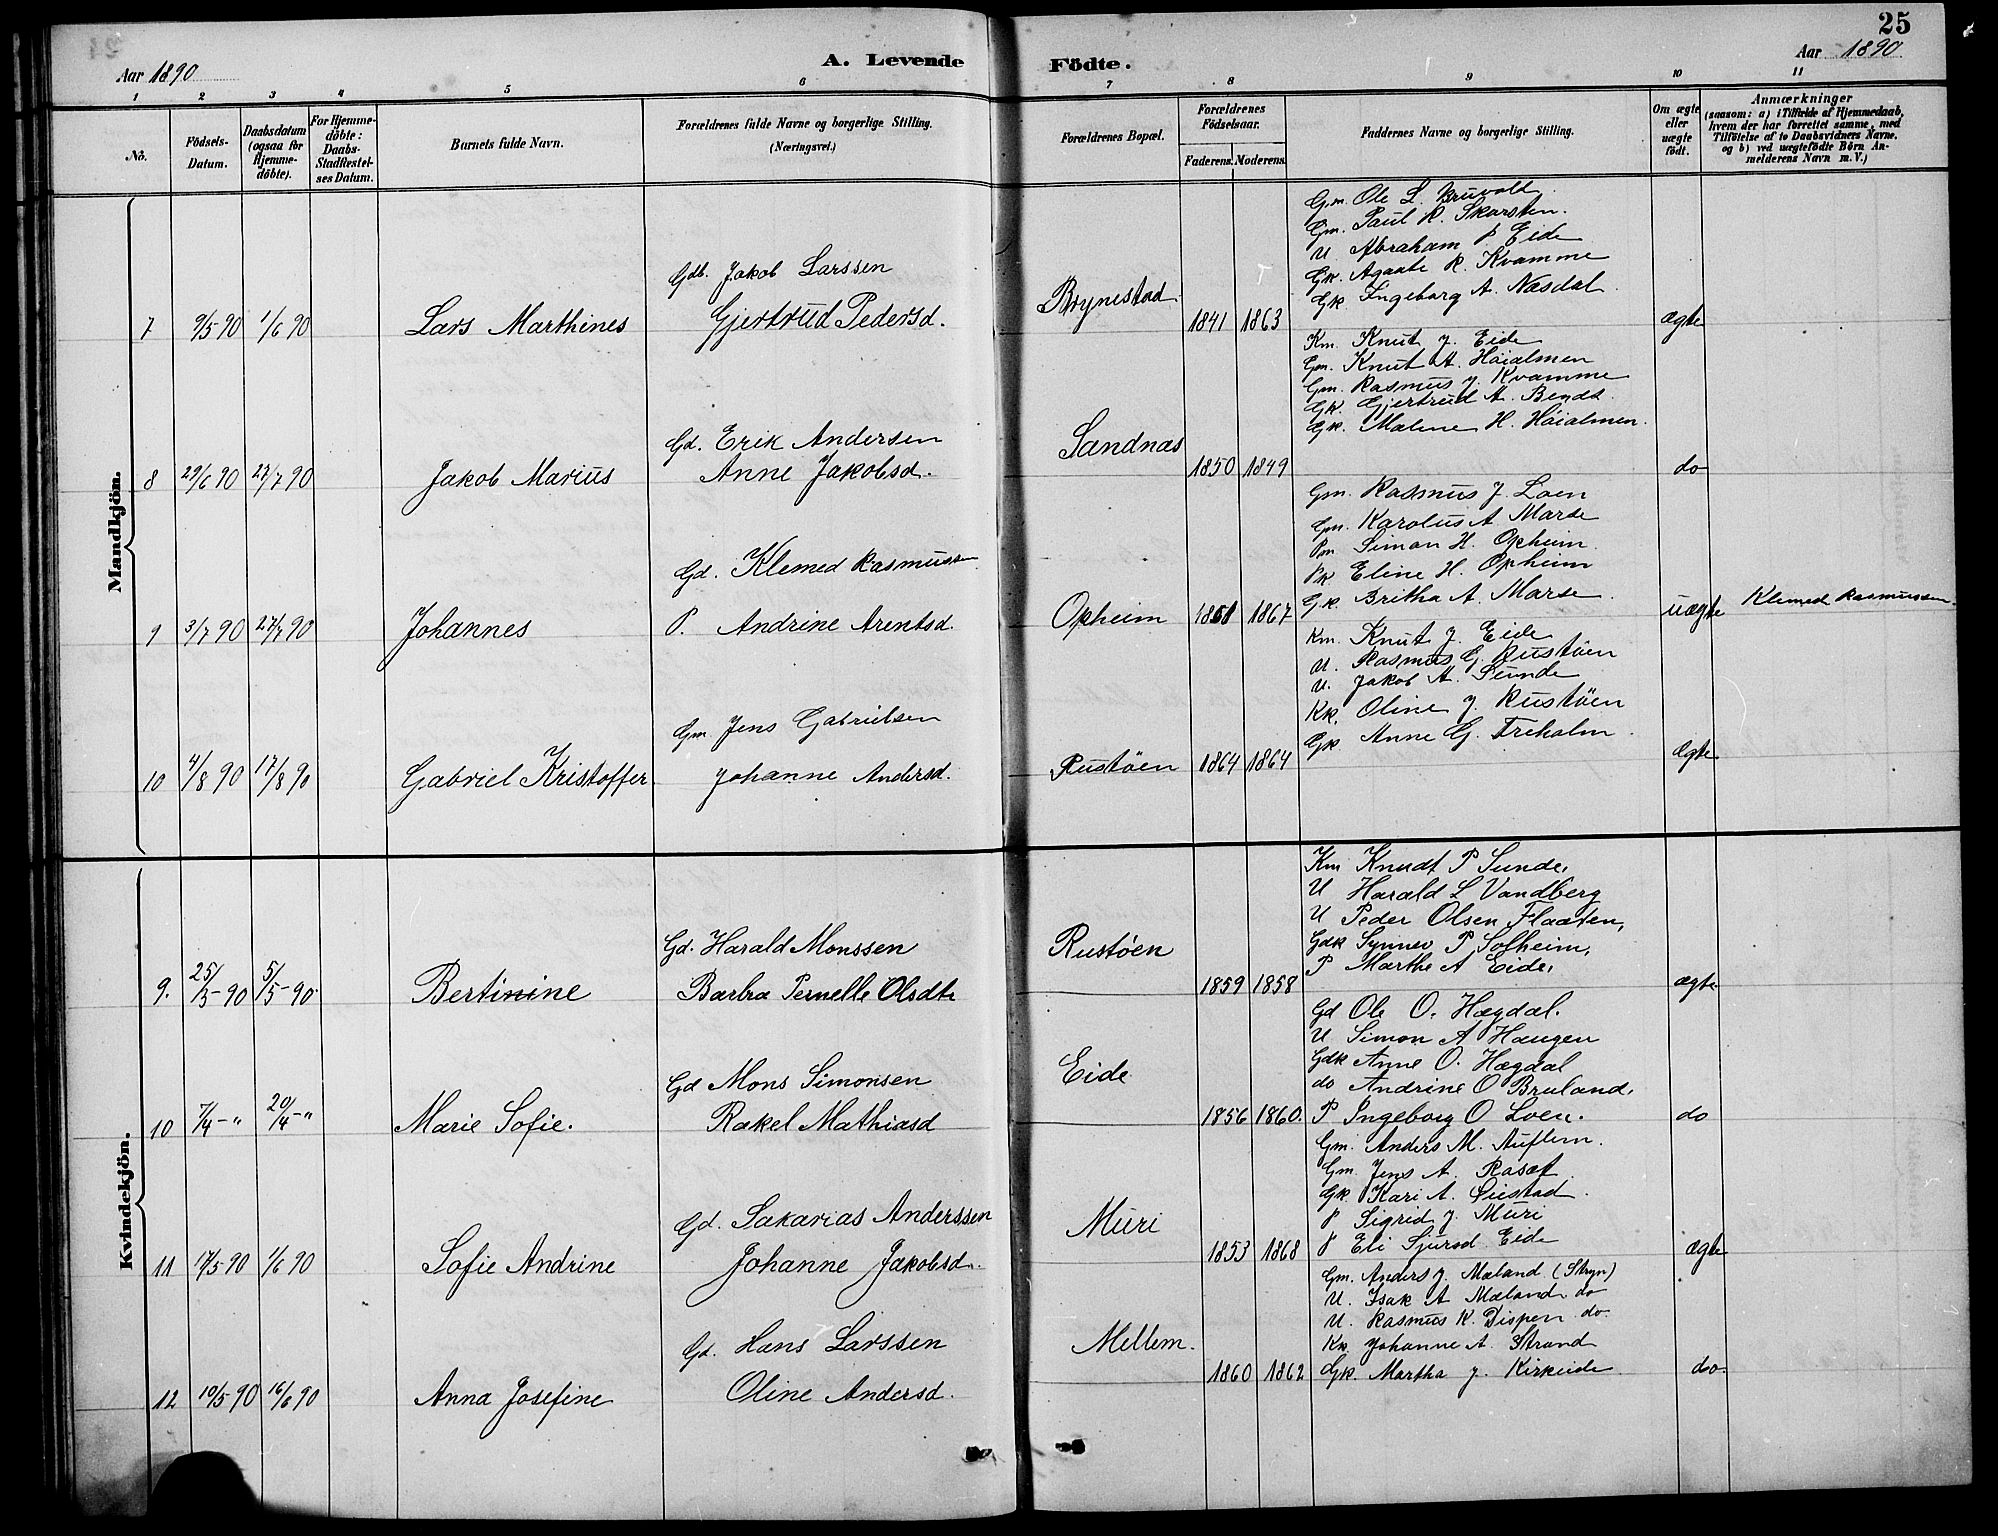 25
Aar 1890
A. Levende Fødte.
Aar 1890
1 2 3 4 5 6 7 8 9 10 11
No.
Födsels-Datum.
Daabsdatum (ogsaa för Hjemme-döbte).
For Hjemme-döbte: Daabs-Stadfæstel-ses Datum.
Barnets fulde Navn.
Forældrenes fulde Navne og borgerlige Stilling. (Næringsvei.)
Forældrenes Bopæl.
Forældrenes Födselsaar.
Faderens. Moderens.
Faddernes Navne og borgerlige Stilling.
Om ægte eller uægte født.
Anmærkninger
(saasom: a) i Tilfælde af Hjemmedaab,
hvem der har forrettet samme, med
Tilföielse af to Daabsvidners Navne,
og b) ved uægtefödte Börn An-
melderens Navn m. V.)
Mandkjön.
7 9/5 90 1/6 90 Lars Marthines
Gdb. Jakob Larssen
Gjertrud Pedersd.
Brynestad
1841 1863
Gm. Ole L. Bruvold.
Gm. Paul R. Skarsten.
U. Abraham P. Eide
Gk. Agaate R. Kvamme
Gk. Ingeborg A. Næsdal.
ægte
8 29/6 90 27/7 90 Jakob Marius
Gd. Erik Andersen
Anne Jakobsd.
Sandnas
1850 1849
Km. Knut J. Eide
Gm. Knut A. Höialmen
Gm. Rasmus J. Kvamme
Gk. Gjertrud A. Bendt.
Gk. Malene H. Höialmen.
do
9 3/7 90 27/7 90 Johannes
Gd. Klemed Rasmussen
P. Andrine Arentsd.
Opheim
1867
Gm. Rasmus J. Loen
Gm. Karolus A. Marse
Pm Simon H. Opheim.
Pk Eline H. Opheim
Gk. Britha A. Marse.
uægte
Klemed Rasmussen.
10 4/8 90 17/8 90 Gabriel Kristoffer.
Gm. Jens Gabrielsen
Johanne Andersd.
Rustöen
1864 1864
Km. Knut J. Eide
U. Rasmus G. Rustöen
U. Jakob A. Sunde
Kk. Oline J. Rustöen
Gk Anne G. Treholm.
ægte
Kvindekjön.
9. 25/3-90 5/5-90. Bertinine
Gd. Harald Monssen
Barbra Pernelle Olsdtr
Rustöen
1859 1858
Km Knudt P Sunde.
U Harald L Vandberg
U Peder Olsen Flaaten,
Gdk Synnev P Solheim,
P Marthe A Eide.
ægte
10 7/4-" 20/4-" Marie Sofie.
Gd Mons Simonsen
Rakel Mathiasd
Eide
1856 1860.
Gd Ole O. Hægdal.
U Simon A Haugen
Gdk Anne O. Hægdal
do Andrine O Bruland.
P Ingeborg O Loen.
do
11 17/5 90 1/6 90 Sofie Andrine
Gd. Sakarias Anderssen
Johanne Jakobsd.
Muri
1853 1868
Gm. Anders M. Auflem.
Gm. Jens A. Rasæt
Gk. Kari A. Öiestad.
P Sigrid J. Muri
P Eli Sjursd. Eide
ægte
12 10/5 90 16/6 90 Anna Josefine
Gd. Hans Larssen
Oline Andersd.
Mellem.
1860 1862
Gm. Anders J. Mæland (Stryn)
U. Isak A Mæland do
U. Rasmus K. Dispen do.
Kk. Johanne A. Strand
Gk. Martha J. Kirkeide.
do.